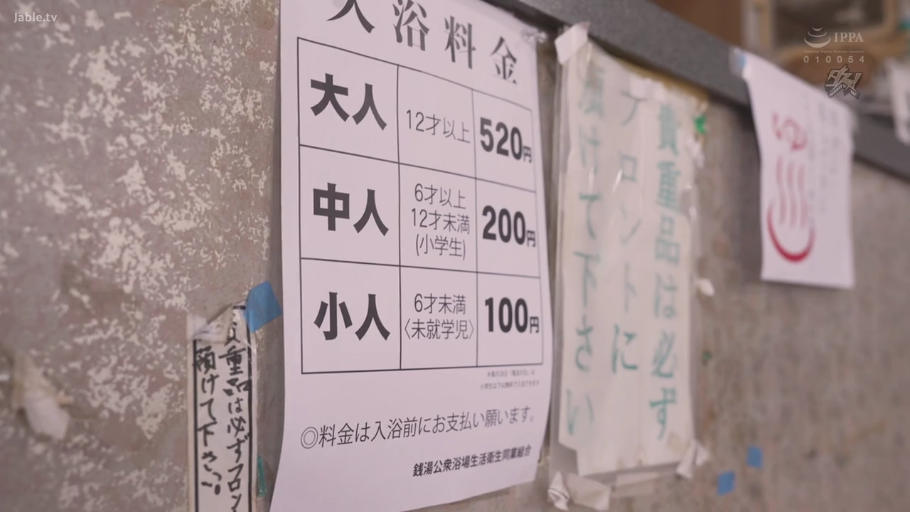 Jable.tv
IPPA
010064
入浴料金
大人
12才以上
520円
中人
6才以上
12才未満
(小学生)
200円
小人
6才未満
〈未就学児〉
100円
◎料金は入浴前にお支払い願います。
銭湯公衆浴場生活衛生同業組合
貴重品は必ず
フロントに
預けて下さい
重品は必ずフロン
預けて下さい
ゆ